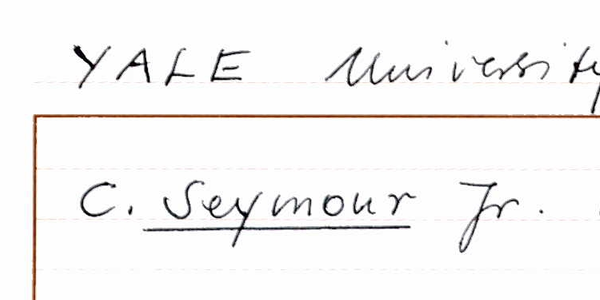 YALE University
C. Seymour Jr.